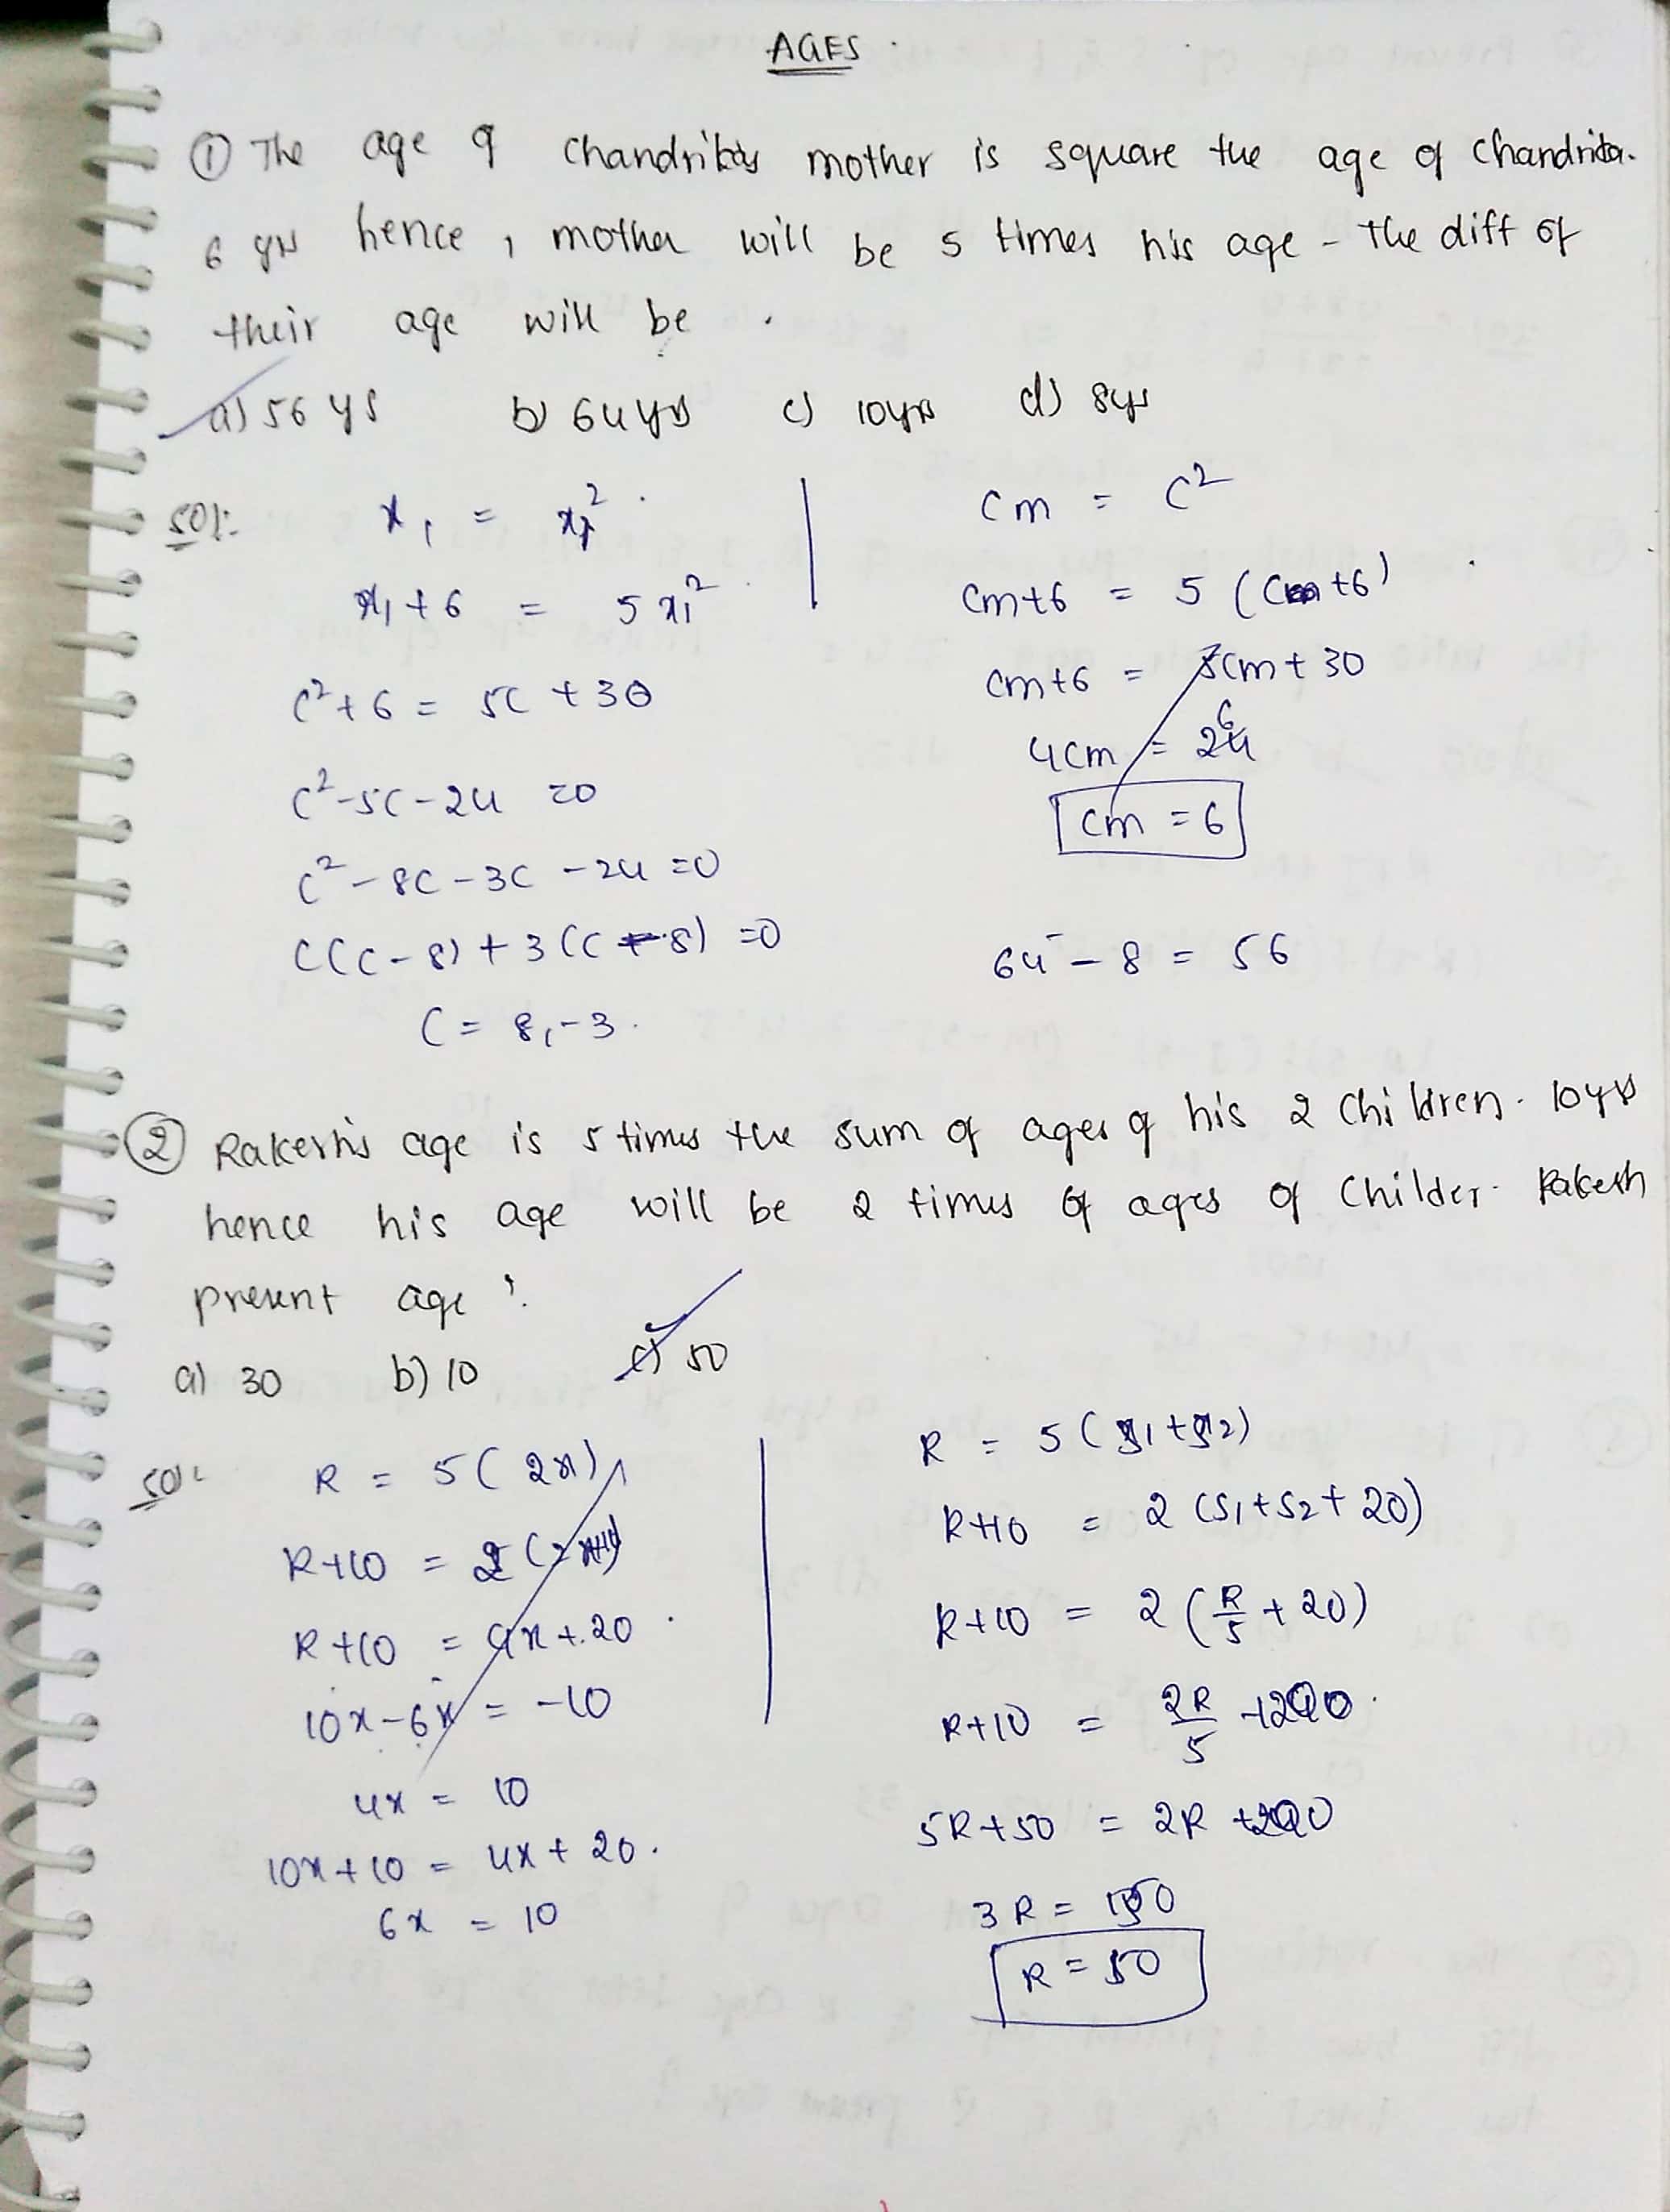 AGES
① The age of Chandrika's mother is square the age of Chandrika.
6 yrs hence, mother will be 5 times his age - The diff of
their age will be .
a) 56 ys b) 64 yrs c) 10yrs d) 8ys
Sol:
x₁ = x₁²
x₁ + 6 = 5x₁²
C² + 6 = 5C + 30
C² - 5C - 24 = 0
C² - 8C - 3C - 24 = 0
C(C - 8) + 3(C - 8) = 0
C = 8, -3.
Cm = C²
Cm+6 = 5 (C+6)
Cm+6 = 5Cm + 30
4Cm = 24 6
Cm = 6
64 - 8 = 56
② Rakesh's age is 5 times the sum of ages of his 2 Children. 10yrs
hence his age will be 2 times of ages of Childer. Rakesh
present age ?
a) 30 b) 10 c) 50
Sol:
R = 5(2x)
R+10 = 2(2x+10)
R+10 = 4x+20
10x-6x = -10
4x = 10
10x+10 = 4x+20.
6x = 10
R = 5(S1+S2)
R+10 = 2(S1+S2+20)
R+10 = 2(R/5+20)
R+10 = 2R/5 + 
5R+50 = 2R +200
3R = 150
R = 50